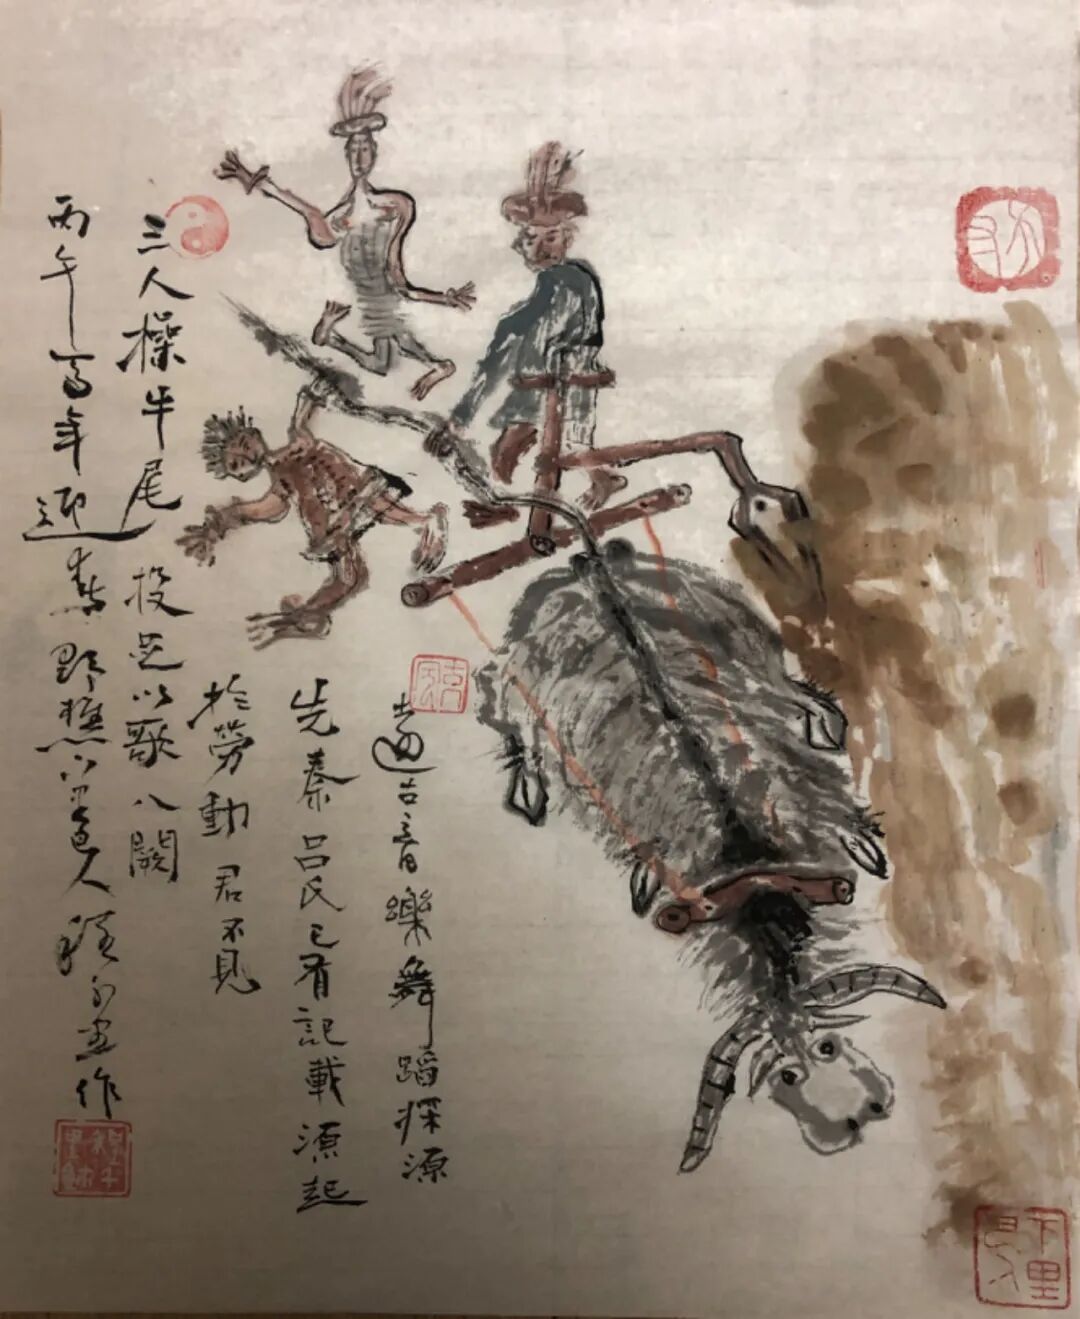 遠古音樂舞蹈探源
先秦呂氏已有記載源起
於勞動君不見
三人操牛尾投足以歌八闋
丙午马年迎春野樵人作
下里巴人